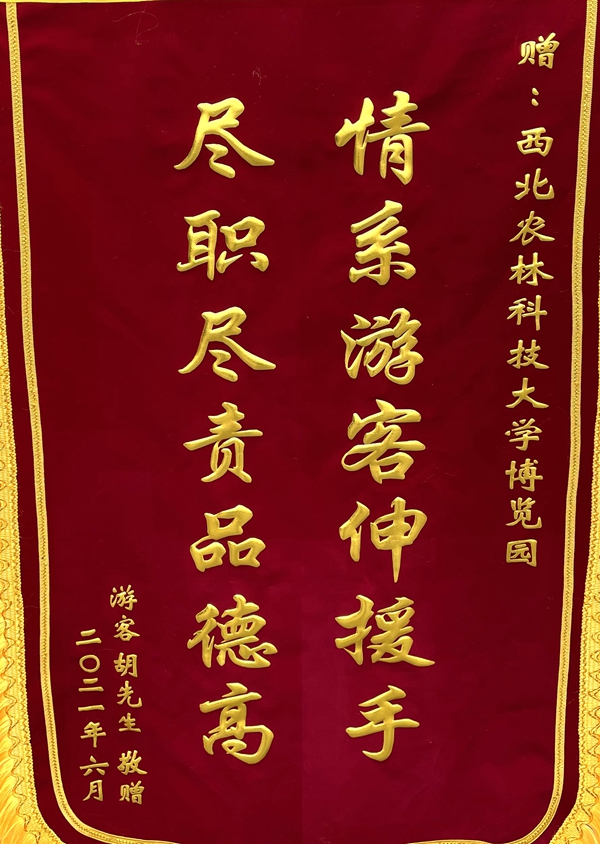 赠：西北农林科技大学博览园
情系游客伸援手
尽职尽责品德高
游客胡先生 敬赠
二〇二一年六月